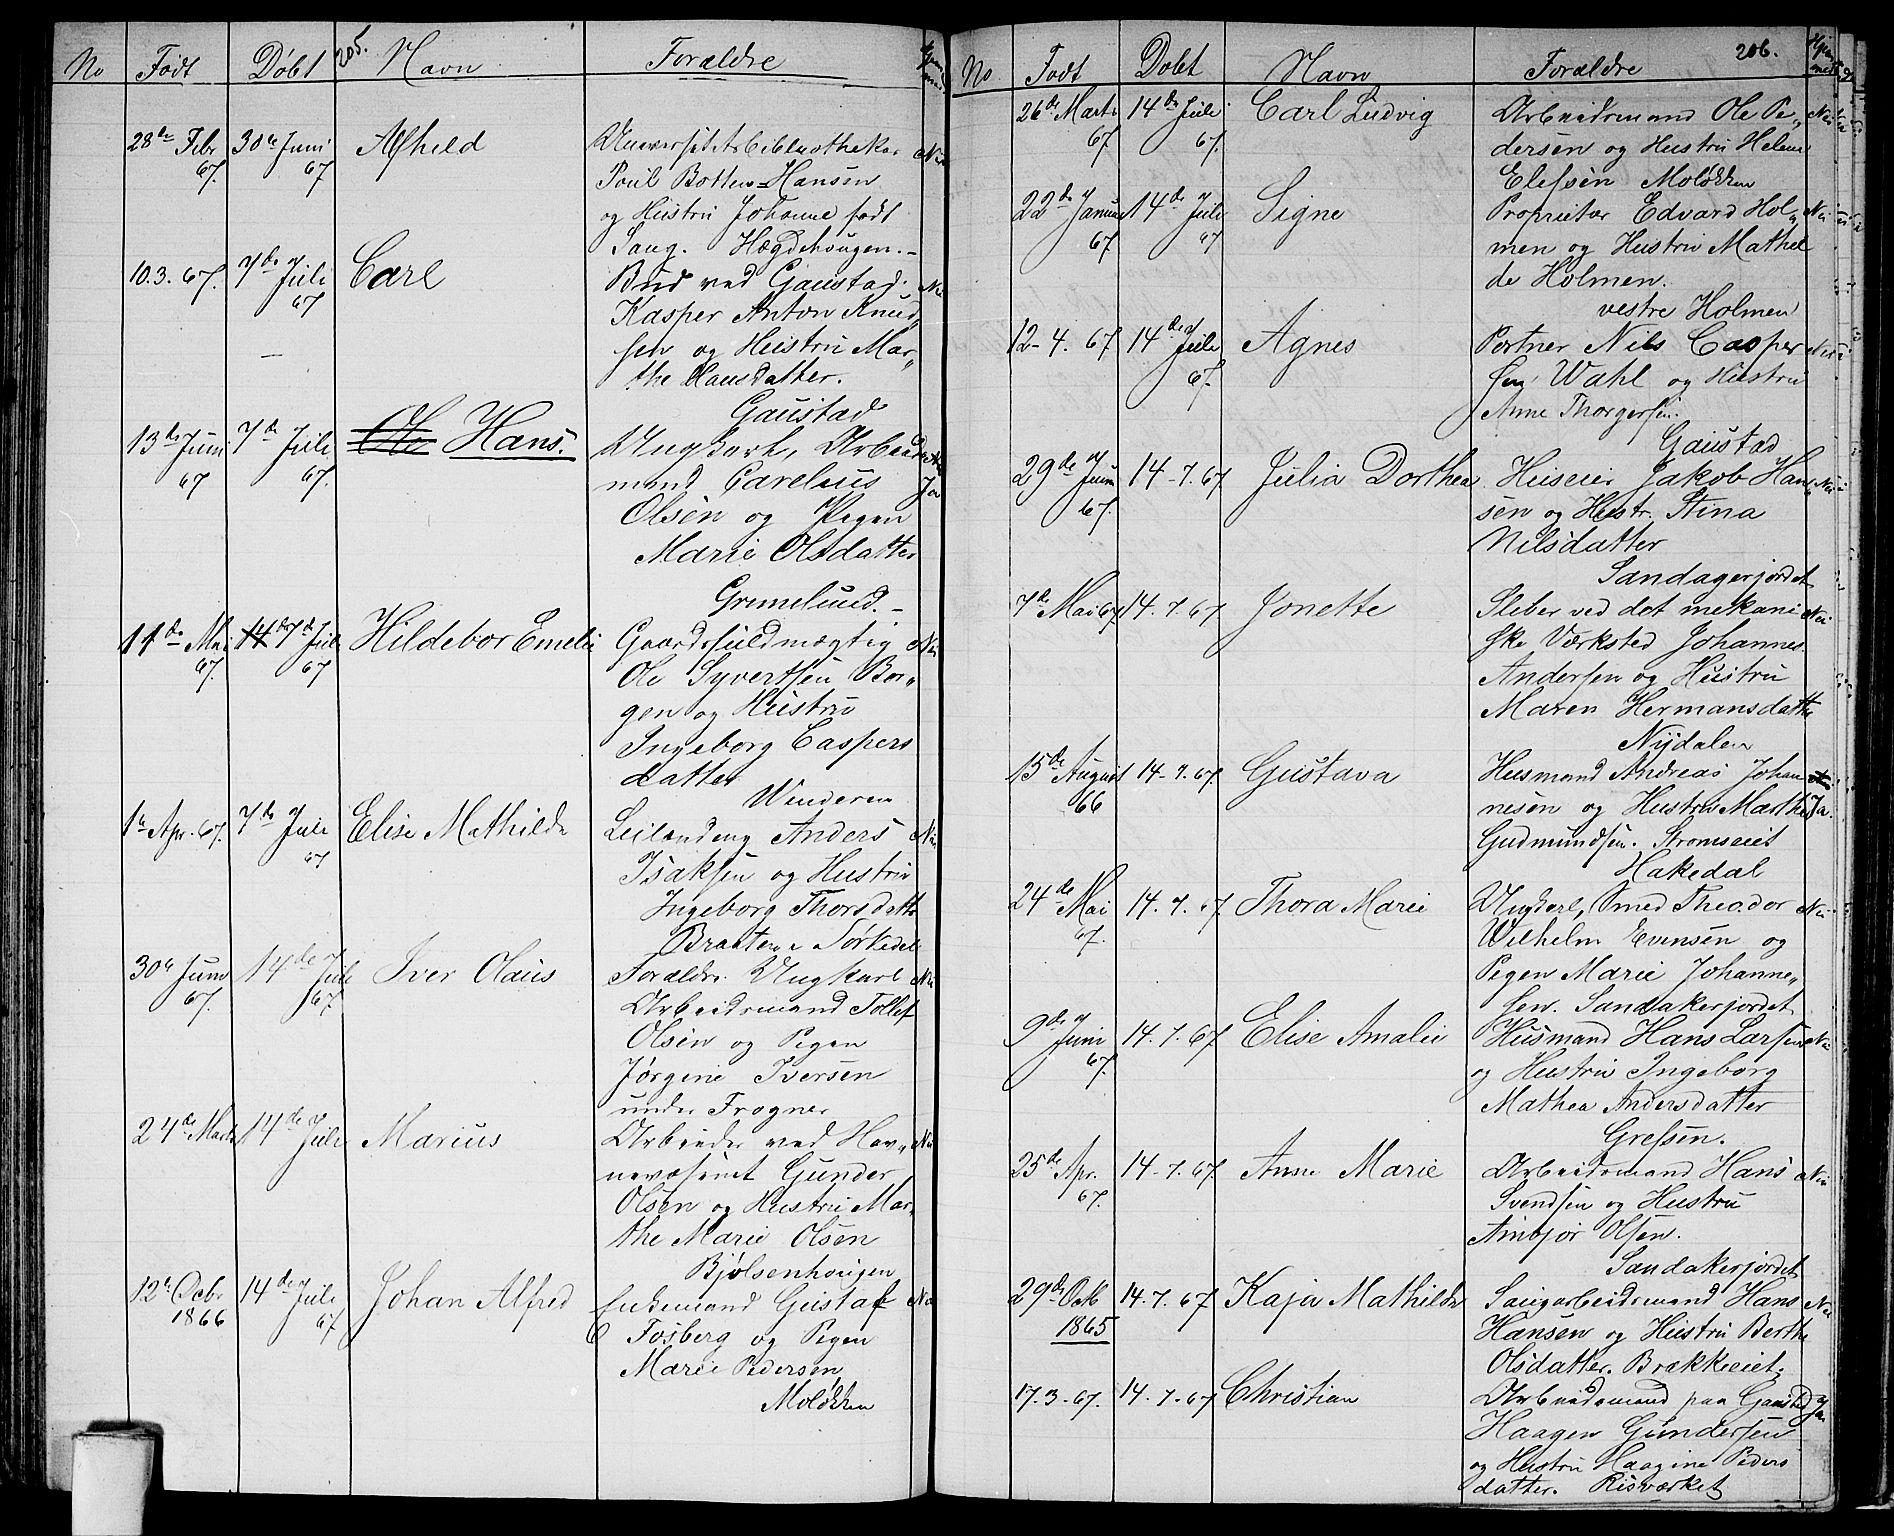 No Født Døbt 205. Navn Forældre
28de Febr 30te Juni Alfhild Universitetsbibliothekar Nei
67. 67 Poul Botten-Hansen
og Hustru Johanne født
Saug. Hægdehougen.-
10.3.67. 7de Juli Carl Bud ved Gaustad. Nei
67 Kasper Anton Knud„
sen og Hustru Mar„
the Hansdatter.
Gaustad
13de Juni 7de Juli Ole Hans. Ungkarl, Arbeids
67 67. mand Carelius Ja
Olsen og Pigen
Marie Olsdatter
Grimelund.-
11te Mai 14de 7de Juli Hildebor Emelie Gaardsfuldmægtig Nei
67. 67 Ole Syvertsen Bor„
gen og Hustru
Ingeborg Caspers
datter
Vinderen
1te Apr. 67. 7de Juli Elise Mathilde Leilænding Anders Nei
67 Isaksen og Hustru
Ingeborg Thorsdatter
Braaten i Sørkedal
30te Juni 14de Juli Iver Olaus Forældre Ungkarl Nei
67. 67. Arbeidsmand Tollef
Olsen og Pigen
Jørgine Iversen
under Frogner
24de Marts 14de Juli Marius Arbeider ved Hav„ Nei
nevæsenet Gunder
Olsen og Hustru Mar„
the Marie Olsen
Bjølsenhougen
12te Octbr 14de Juli Johan Alfred Enkemand Gustaf Nei
1866 67 Fosberg og Pigen
Marie Pedersen
Moløkken
No Født Døbt Navn Forældre 206.
26de Marts 14de Juli Carl Ludvig Arbeidsmand Ole Pe„ Nei
67. 67. dersen og Hustru Helene
Elefsen Moløkken
22de Januar 14de Juli Signe Proprietær Edvard Hol„ Nei
67. 67 men og Hustru Mathil
de Holmen.
vestre Holmen
12-4. 67 14de Juli Agnes Portner Nils Casper Nei
67. sen Wahl og Hustru
Anne Thorgersen.
Gaustad
29de Juni 14-7. 67 Julia Dorthea Huseier Jakob Han„ Nei
67. sen og Hustr. Stina
Nilsdatter
Sandagerjordet
7de Mai 67 14.7.67 Jonette Sleber ved det mekani Nei
ske Værksted Johannes
Andersen og Hustru
Maren Hermansdatter
Nydalen
15de August 14-7.67. Gustava Husmand Andreas Johan
66 nesen og Hustru Marthe Ja.
Gudmundsen. Strømseiet
Hakedal
24de Mai 14.7.67 Thora Marie Ungkarl, Smed Theodor Nei
67. Wilhelm Evensen og
Pigen Marie Johanne„
sen. Sandakerjordet
9de Juni 14.7.67 Elise Amalie Husmand Hans Larsen Nei
67. og Hustru Ingeborg
Mathea Andersdatter
Grefsen.
25de Apr. 14-7.67. Anne Marie Arbeidsmand Hans Nei
67. Svendsen og Hustru
Ambjør Olsen.
Sandakerjordet
29de Octb 14.7.67 Kaja Mathilde Saugarbeidsmand Hans Nei
1865 Hansen og Hustru Berthe
Olsdatter. Brækkeeiet.
17.3.67. 14.7.67 Christian Arbeidsmand paa Gaustad Ja
Haagen Gundersen
og Hustru Haagine Peders
datter. Risværket